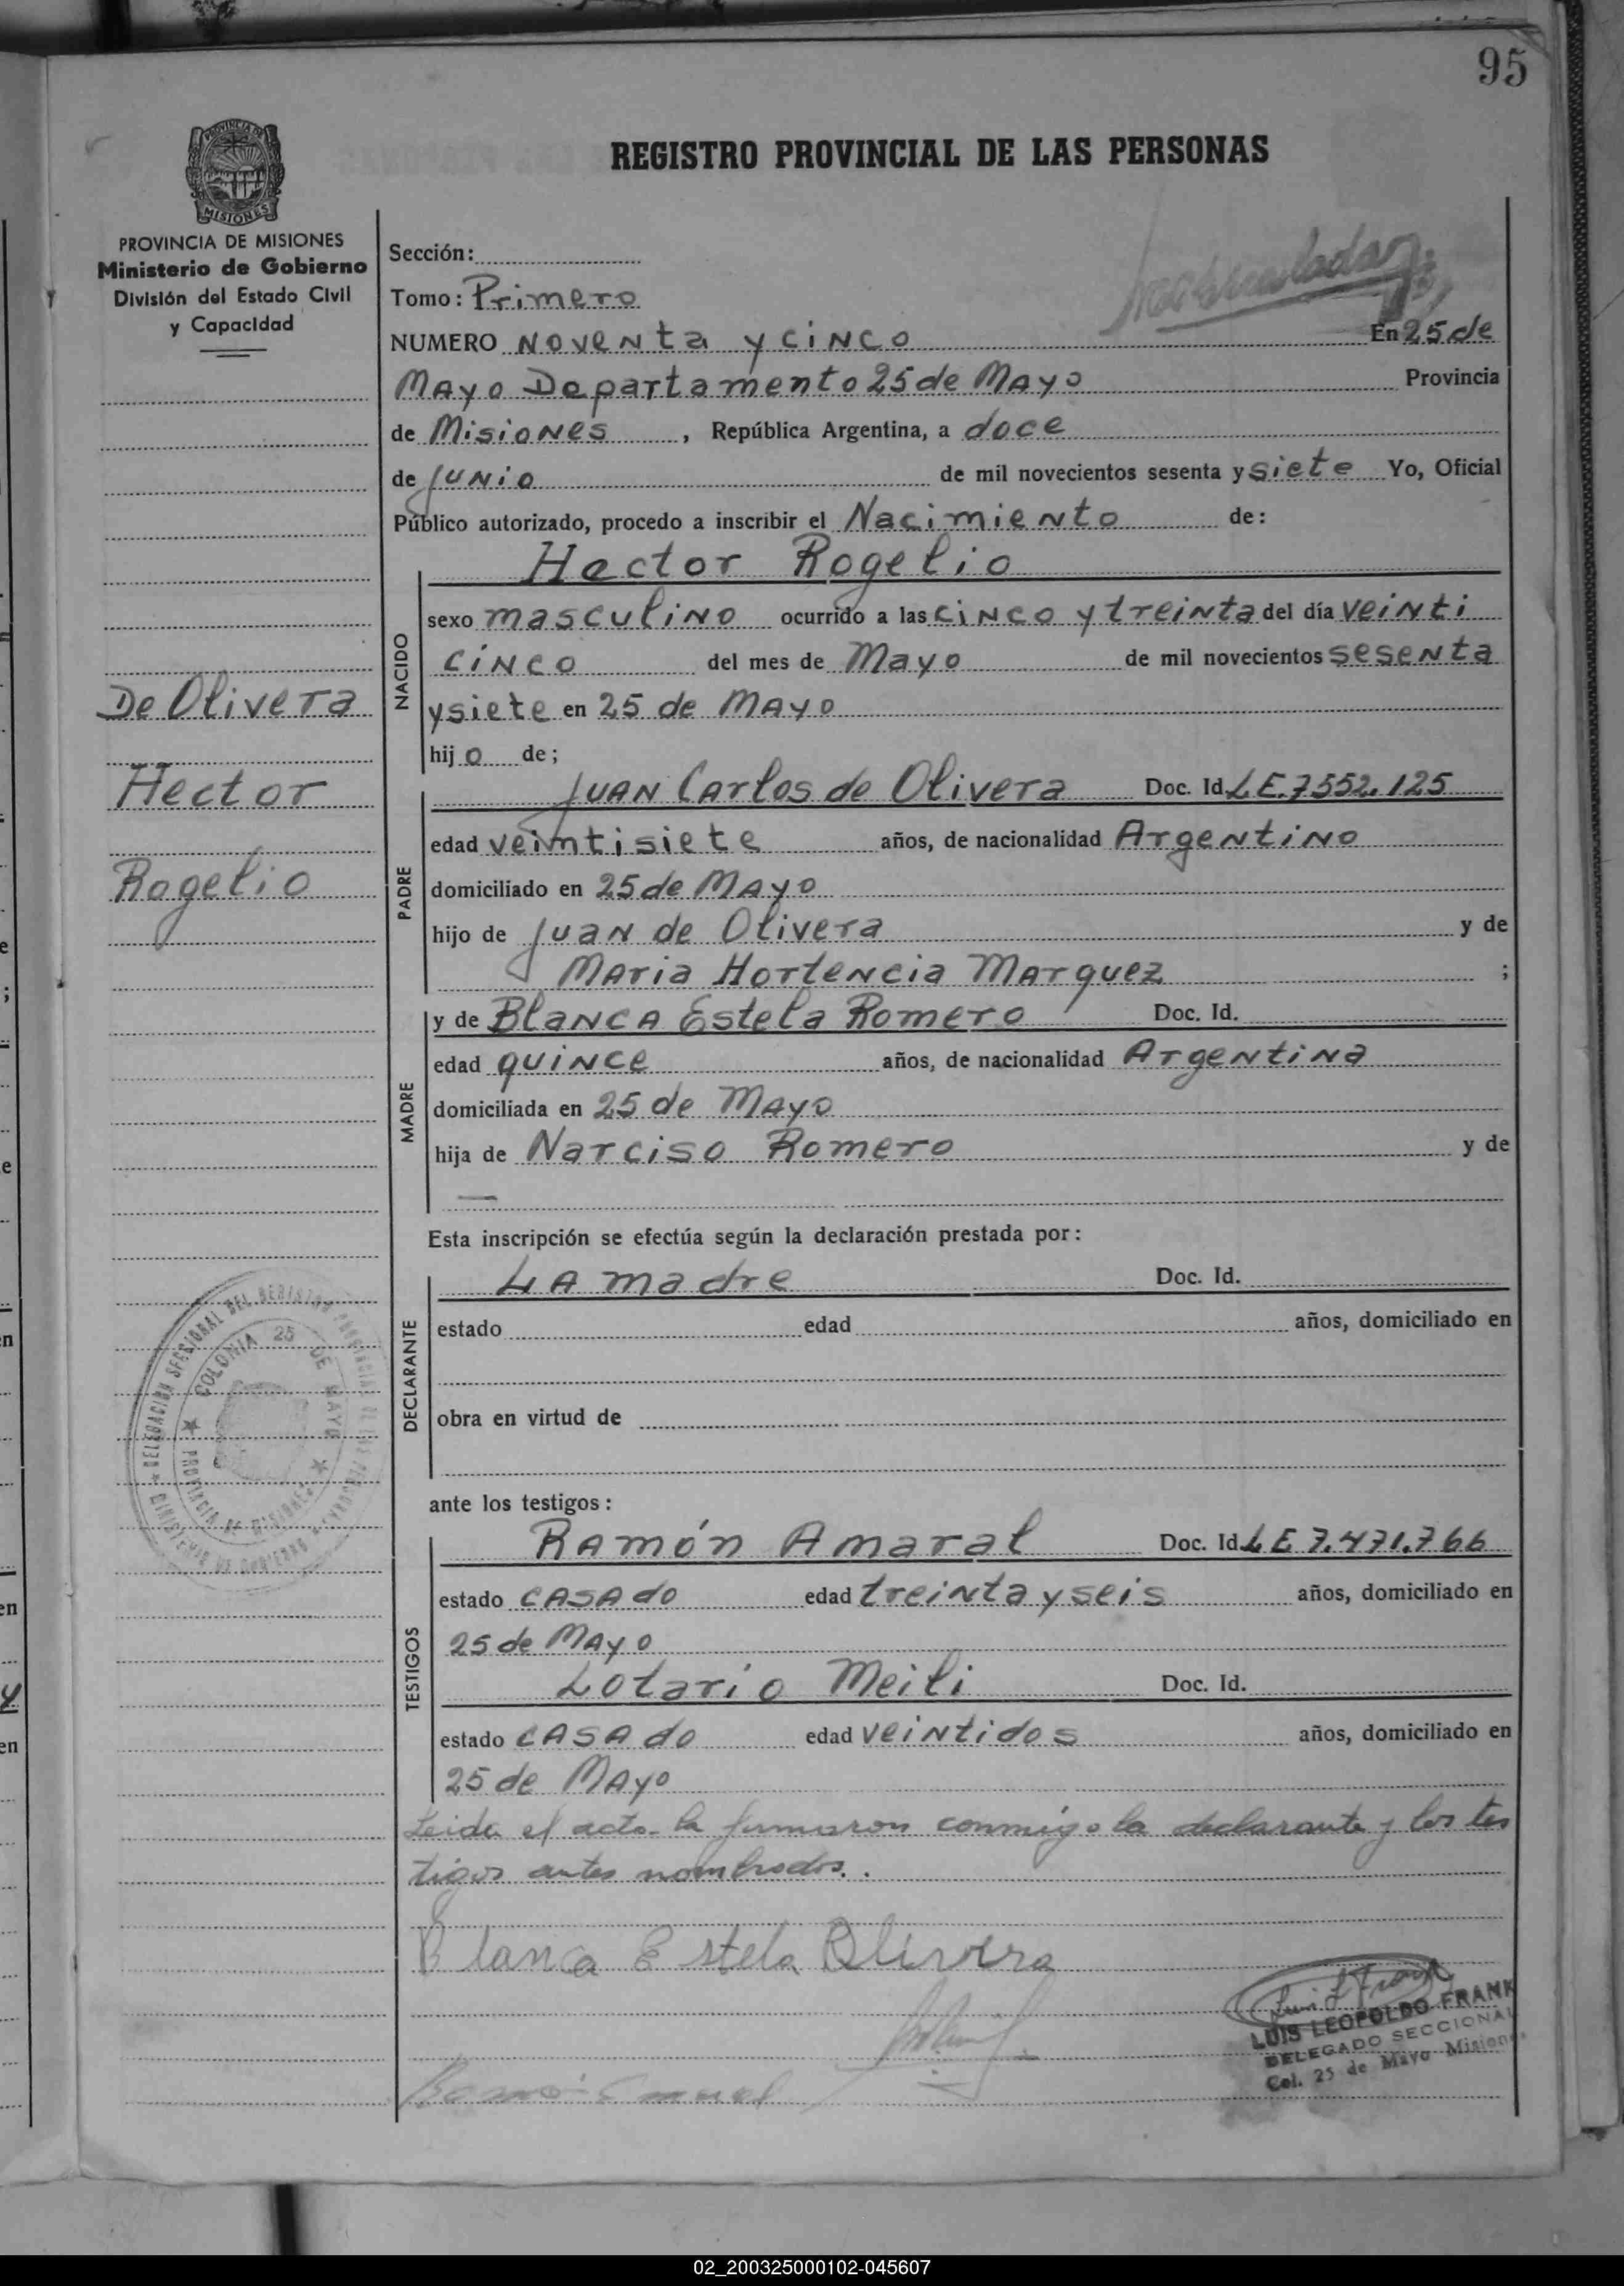 95
REGISTRO PROVINCIAL DE LAS PERSONAS
PROVINCIA DE MISIONES
MISIONES
PROVINCIA DE MISIONES
Ministerio de Gobierno
División del Estado Civil
y Capacidad
De Olivera
Hector
Rogelio
DELEGACION SECCIONAL DEL REGISTRO PROVINCIAL DE LAS PERSONAS
MINISTERIO DE GOBIERNO
COLONIA 25 DE MAYO
PROVINCIA DE MISIONES
Sección:
Tomo: Primero
NUMERO Noventa y cinco En 25 de
Mayo Departamento 25 de Mayo Provincia
de Misiones, República Argentina, a doce
de Junio de mil novecientos sesenta y siete Yo, Oficial
Público autorizado, procedo a inscribir el Nacimiento de:
Hector Rogelio
NACIDO
sexo masculino ocurrido a las cinco y treinta del día veinti
cinco del mes de Mayo de mil novecientos sesenta
y siete en 25 de Mayo
hij o de;
PADRE
Juan Carlos de Olivera Doc. Id. LE.7552.125
edad veintisiete años, de nacionalidad Argentino
domiciliado en 25 de Mayo
hijo de Juan de Olivera y de
Maria Hortencia Marquez ;
MADRE
y de Blanca Estela Romero Doc. Id.
edad quince años, de nacionalidad Argentina
domiciliada en 25 de Mayo
hija de Narciso Romero y de
—
Esta inscripción se efectúa según la declaración prestada por:
DECLARANTE
La madre Doc. Id.
estado edad años, domiciliado en
obra en virtud de
ante los testigos:
TESTIGOS
Ramón Amaral Doc. Id. LE 7.471.766
estado casado edad treinta y seis años, domiciliado en
25 de Mayo
Lotario Meili Doc. Id.
estado casado edad veintidos años, domiciliado en
25 de Mayo
Leida el acta la firmaron conmigo la declarante y los tes
tigos antes nombrados.
Blanca Estela Olivera
LUIS LEOPOLDO FRANK
DELEGADO SECCIONAL
Col. 25 de Mayo Misiones
02_200325000102-045607